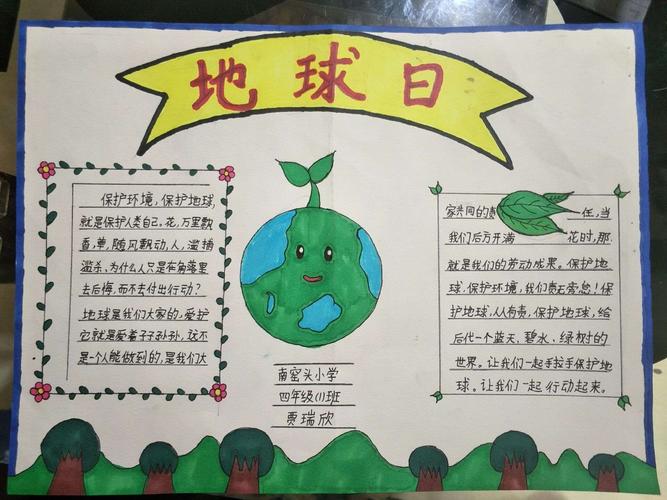 地球日
保护环境,保护地球,
就是保护人类自己。花,万里飘
香,草,随风飘动,人,滥捕
滥杀、为什么人只是在角落里
去后悔,而不去付出行动?
地球是我们大家的,爱护
它就是爱着子子孙孙,这不
是一个人能做到的,是我们大
南窑头小学
四年级(1)班
贾瑞欣
家共同的责任,当
我们后方开满花时,那
就是我们的劳动成果。保护地
球,保护环境,我们责无旁怠!保
护地球,人人有责,保护地球,给
后代一个蓝天、碧水、绿树的
世界。让我们一起手拉手保护地
球。让我们一起行动起来。